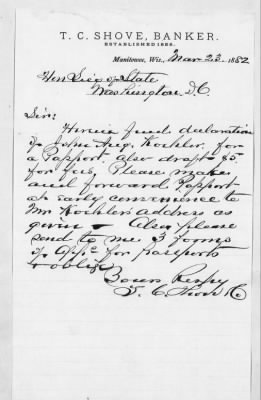 T. C. SHOVE, BANKER.
ESTABLISHED 1858.
Manitowoc, Wis., Mar 23 1882
Hon Secy of State
Washington D.C.
Sir:
Herein find declaration
of John Aug. Koehler for
a Passport also draft $5.
for fees, Please make
and forward Passport
at early convenience to
Mr. Koehler's address as
given — Also please
send to me 3 forms
of App for Passports
& oblige
Yours Respy
T. C. Shove